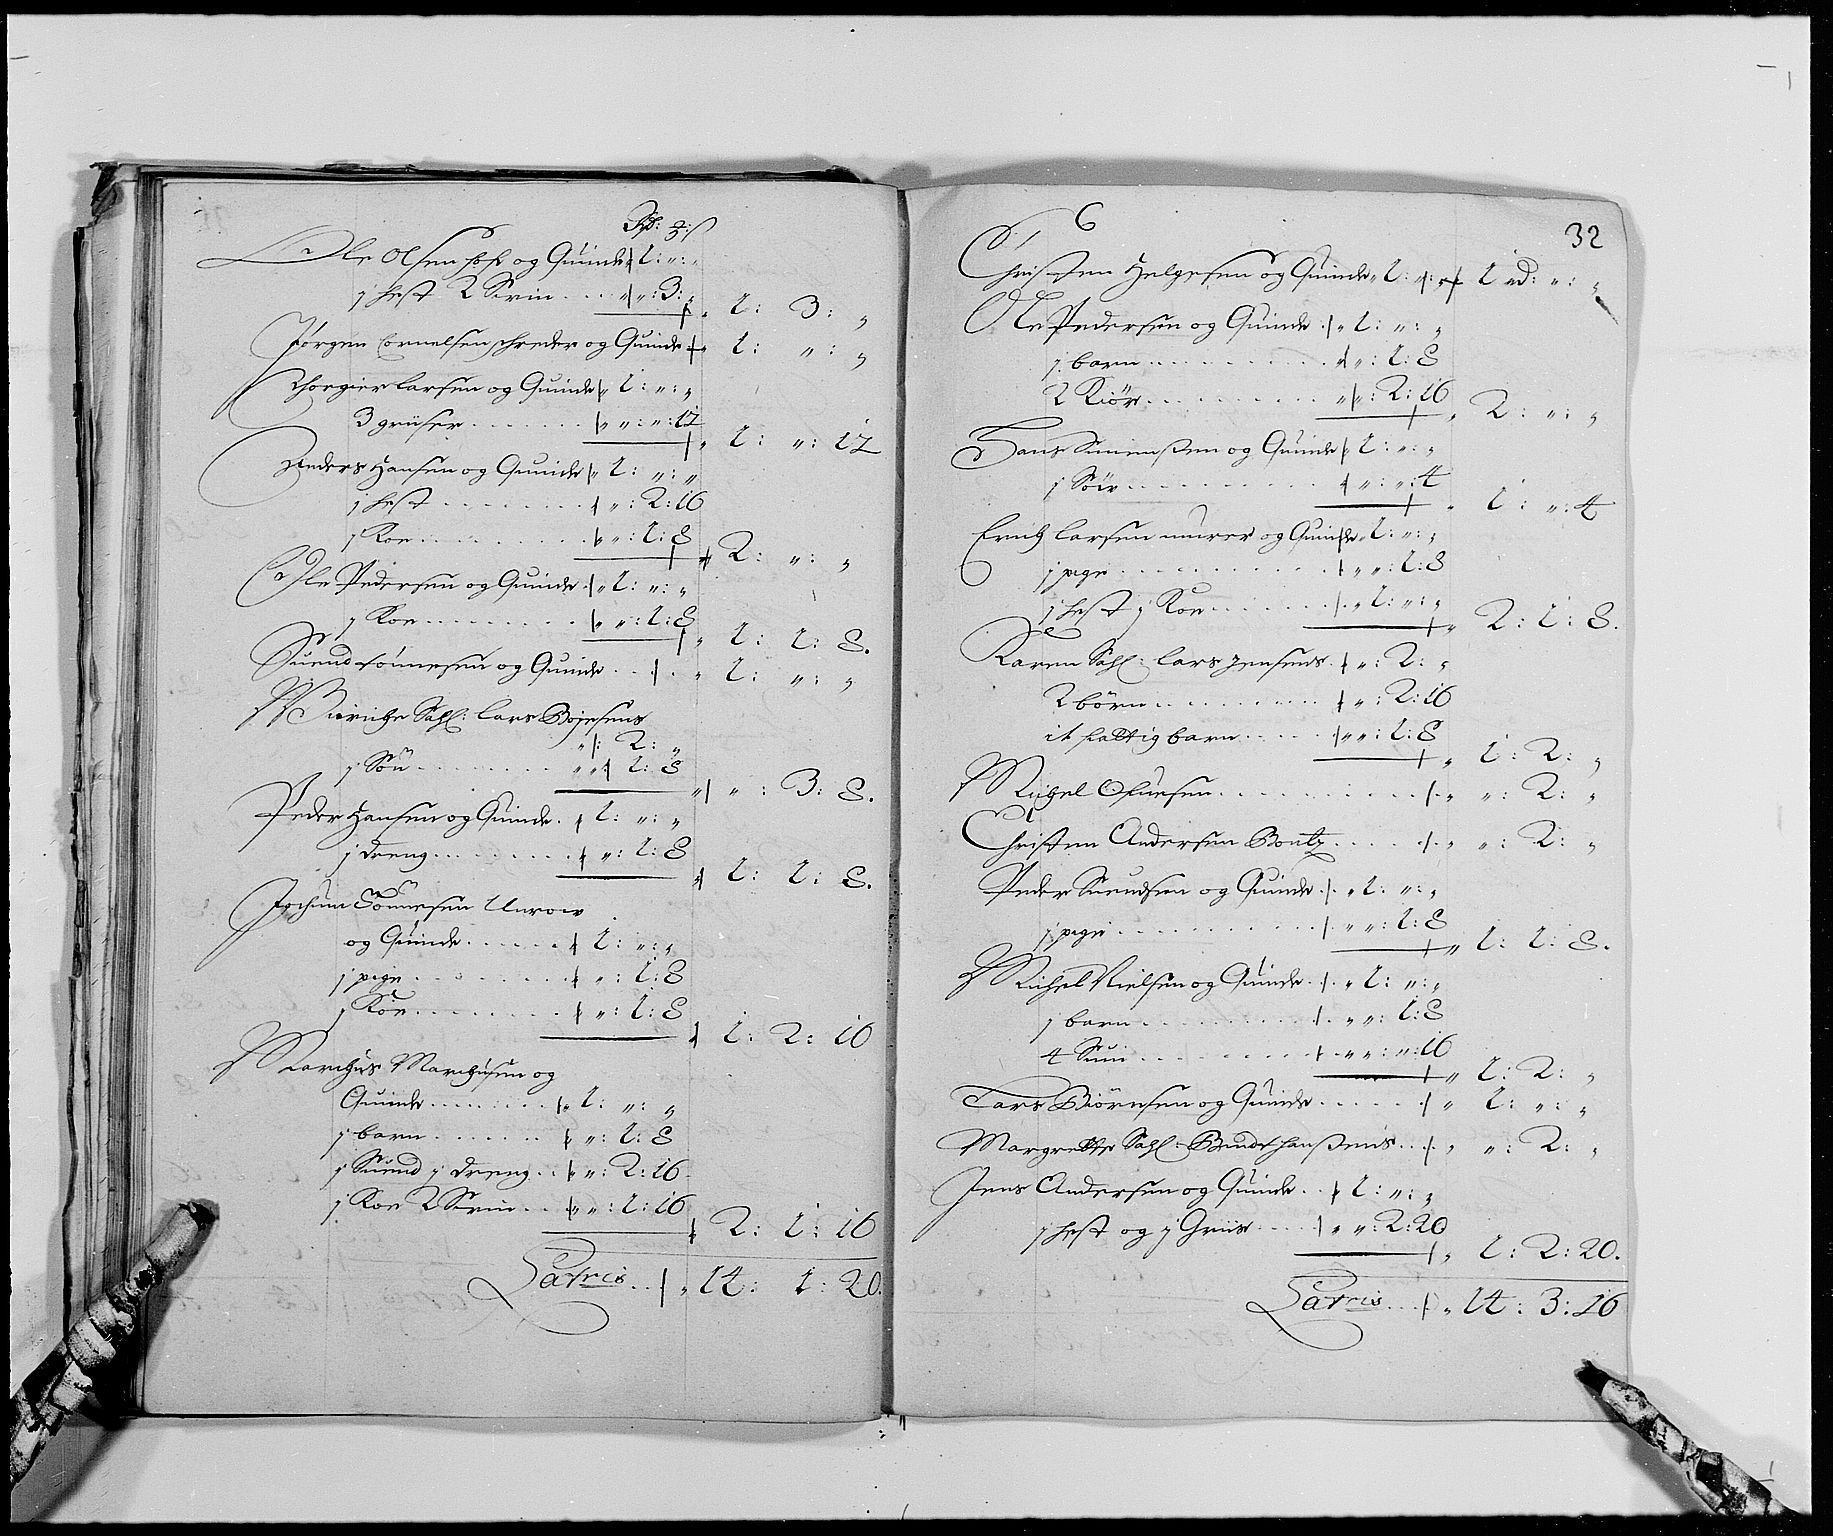 Rdr: ₰: ß
Ole Olsen og Quinde 1: „: „
j hest 2 Sviin .... „: 3: „ „ 1: 3: „
Jørgen Cornelsen schreder og Quinde „ 1: „: „
Thorgier Larsen og Quinde 1: „: „
3 griiser ....... „: „: 12 „ 1: „: 12
Anders Hansen og Quinde 1: „: „
j hest ........ „: 2: 16
j Koe ........ „: 1: 8 „ 2: „: „
Ole Pedersen og Quinde 1: „: „
j Koe ........ „: 1: 8 „ 1: 1: 8.
Suend Tønnesen og Quinde .... „ 1: „: „
Sahl: Lars Bojesens
„: 2: „
j Søn ........ „: 1: 8 „ „: 3: 8.
Peder Hansen og Quinde . 1: „: „
j dreng ........ „: 1: 8 „ 1: 1: 8.
Jochum Tønnesen
og Quinde ...... 1: „: „
j pige ........ „: 1: 8
j Koe ........ „: 1: 8 1: 2: 16
Marchus Marchusen og
Quinde ........ 1: „: „
j barn ....... „: 1: 8
j Suend j dreng .. „: 2: 16
j Koe 2 Sviin .. „: 1: 16 2: 1: 16
Latris .. „ 14: 1: 20.
6
32
Christen Helgesen og Quinde 1: „: „ 1 rd: „: „
Ole Pedersen og Quinde . „ 1: „: „
j barn ........ „: 1: 8
2 Kiør ........ „: 2: 16 „ 2: „: „
Hans Simensen og Quinde 1: „: „
j Søw ........ „: „: 4 „ 1: „: 4
Erich Larsen murer og Quinde „ 1: „: „
j pige ........ „ „: 1: 8
j hest j Koe ...... „ 1: „: „ 2: 1: 8.
Karen Sahl: Lars Jensens . „: 2: „
2 børn ........ „: 2: 16
it fattig barn ..... „: 1: 8 „ 1: 2: „
Michel Olufsen ........ „ „: 2: „
Christen Andersen Bontz ..... „ „: 2: „
Peder Suendsen og Quinde . „ 1: „: „
j pige ........ „ „: 1: 8 „ 1: 1: 8.
Michel Nielsen og Quinde . „ 1: „: „
j barn ........ „ „: 1: 8
4 Smaa ........ „ „: „: 16 „ 1: 2: „
Lars Biørnsen og Quinde ..... „ 1: „: „
Margrette Sahl: Bendt Hanßens .. „ „: 2: „
Jens Andersen og Quinde .. 1: „: „
j hest og j Griis .... „ „: 2: 20 „ 1: 2: 20.
Latris ... „ 14: 3: 16